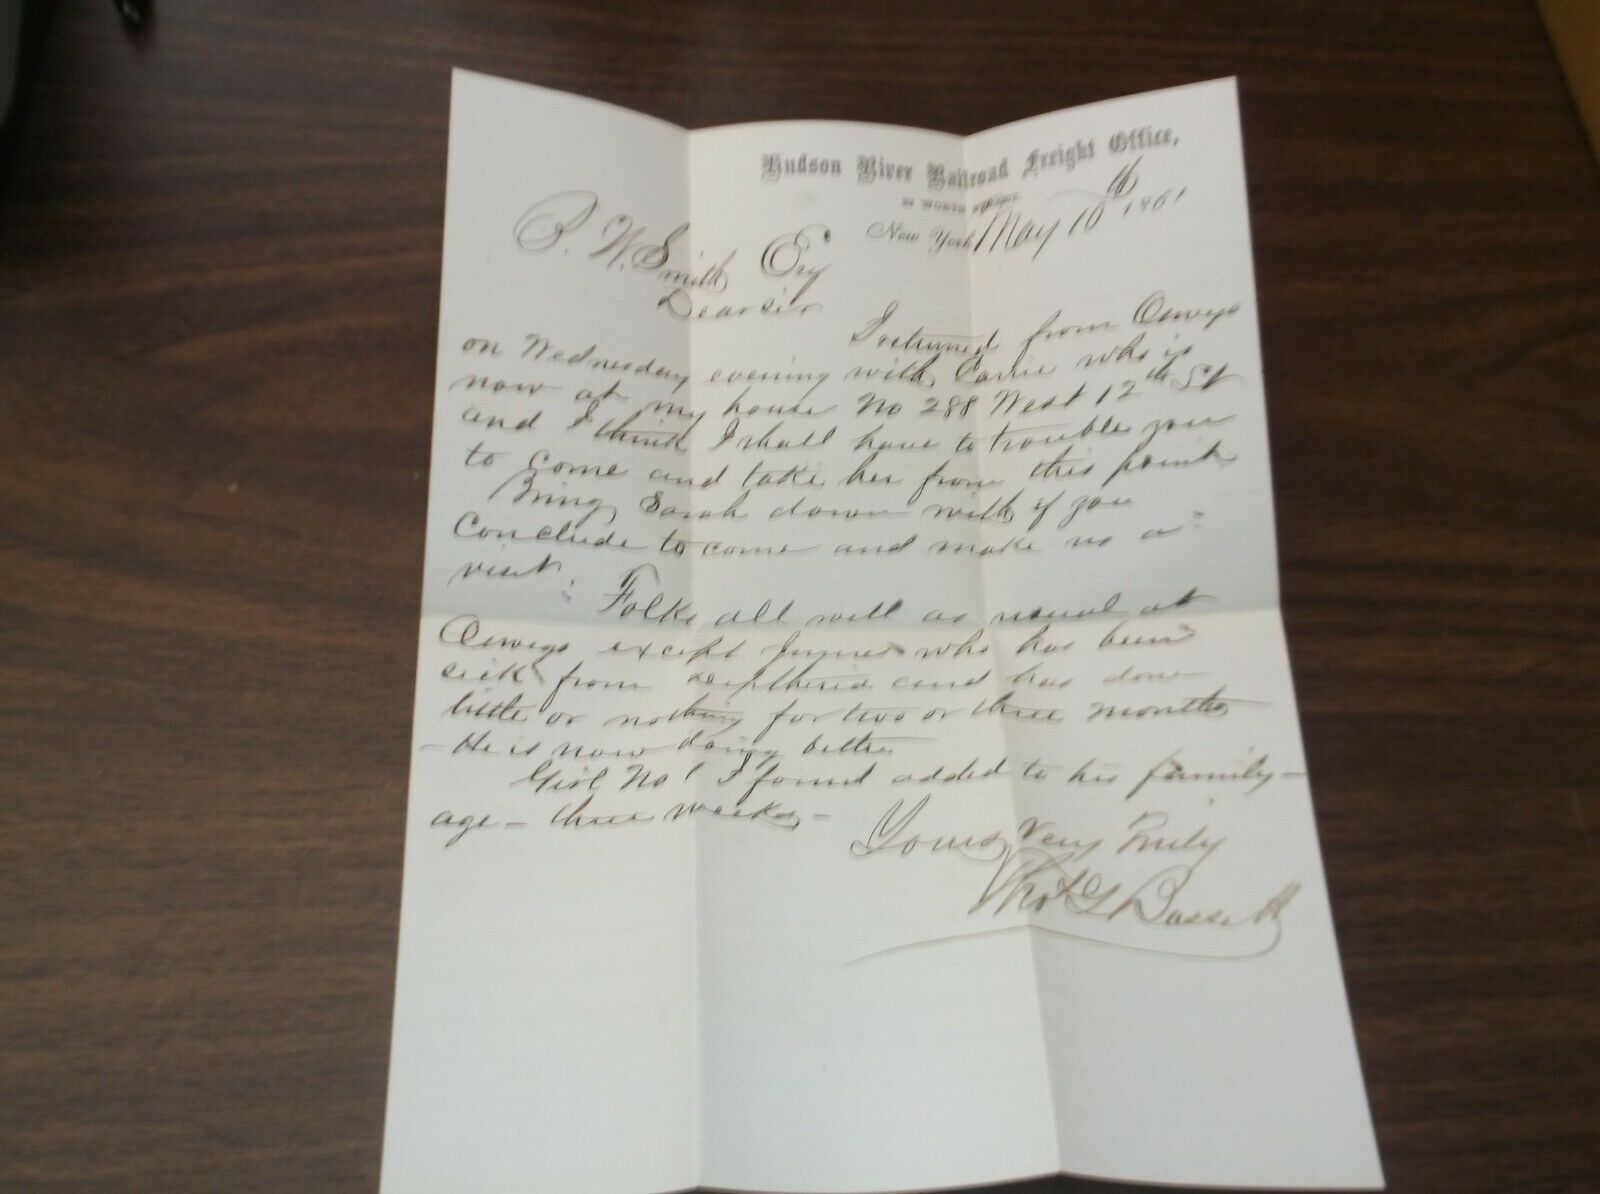 Hudson River Railroad Freight Office,
WORTH
New York May 10th 1861
P. W. Smith Esq
Dear sir
I returned from Oswego
on Wednesday evening with Carrie who is
now at my house No 288 West 12th St
and I think I shall have to trouble you
to come and take her from this point
Bring Sarah down with if you
Conclude to come and make us a
visit.
Folks all well as usual at
Oswego except who has been
sick from diptheria and has done
little or nothing for two or three months
- He is now doing better
Girl No 1 I found added to his family -
age - three weeks -
Yours Very Truly
Thos G Bassett